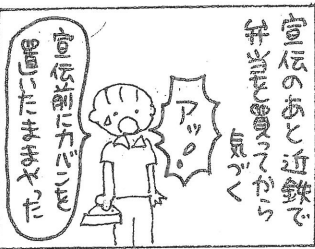 宣伝のあと近鉄で
弁当を買ってから
気づく
アッ!!
宣伝前にカバンを
置いたままやった